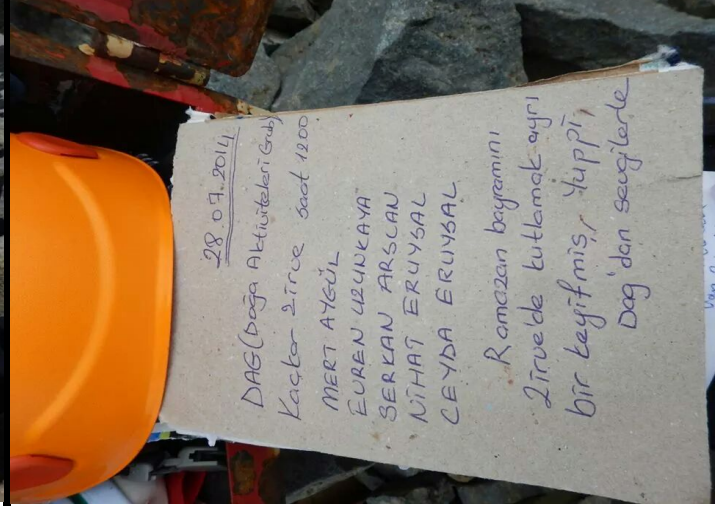 28.07.2014
DAG (Doğa Aktiviteleri Grub)
Kaçkar Zirve saat 1200
MERT AYGÜL
EVREN UZUNKAYA
SERKAN ARSLAN
NİHAT ERUYSAL
CEYDA ERUYSAL
Ramazan bayramını
Zirve'de kutlamak ayrı
bir keyifmiş, Yuppi,
Dag'dan sevgilerle